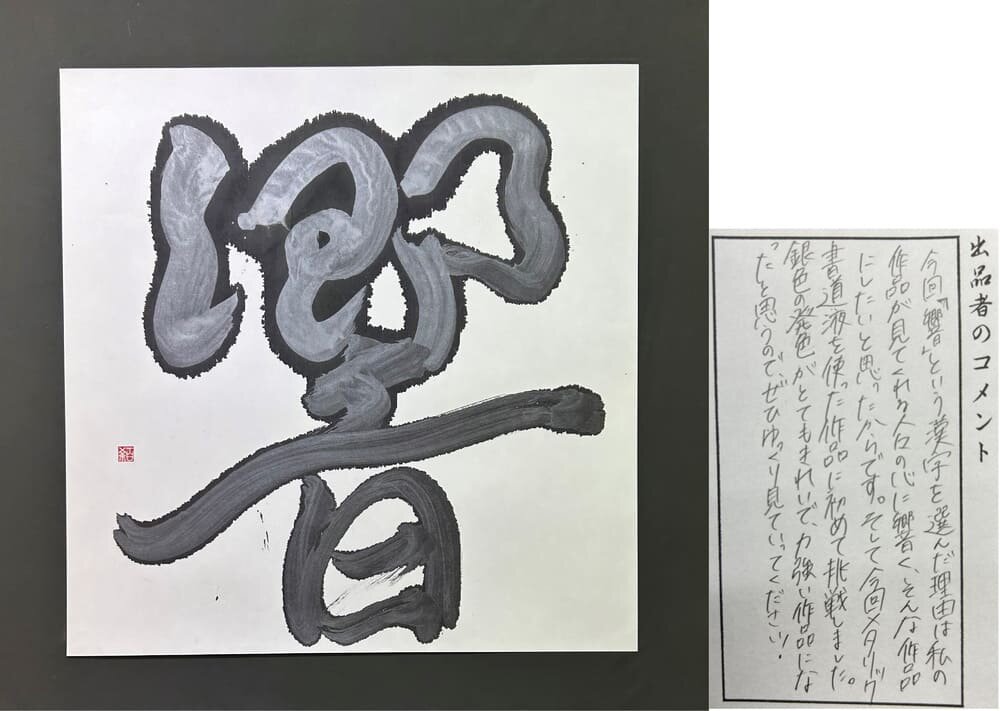 響
出品者のコメント
今回『響』という漢字を選んだ理由は私の
作品が見てくれる人々の心に響く、そんな作品
にしたいと思ったからです。そして今回メタリック
書道液を使った作品に初めて挑戦しました。
銀色の発色がとてもきれいで、力強い作品にな
ったと思うので、ぜひゆっくり見ていってください！